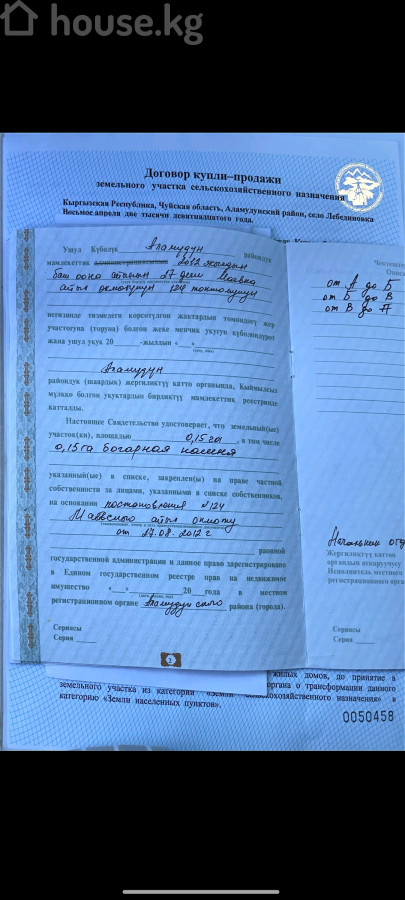 house.kg
Договор купли–продажи
земельного участка сельскохозяйственного назначения
Кыргызская Республика, Чуйская область, Аламудунский район, село Лебединовка
Восьмое апреля две тысячи девятнадцатого года.
Ушул Күбөлүк Аламудун райондук
мамлекеттик 2012 жылдын
баш оона айынын 27 деги Маевка
айыл өкмөтүнүн 124 токтомунун
негизинде тизмедеги көрсөтүлгөн жактардын төмөндөгү жер
участогуна (торуна) болгон жеке менчик укугун күбөлөндүрөт
жана ушул укук 20 -жылдын « »
Аламудун
райондук (шаардык) жергиликтүү каттоо органында, Кыймылсыз
мүлккө болгон укуктардын бирдиктүү мамлекеттик реестринде
катталды.
Настоящее Свидетельство удостоверяет, что земельный(ые)
участок(ки), площадью 0,15 га, в том числе
0,15 га богарная пашня
указанный(ые) в списке, закреплен(ы) на праве частной
собственности за лицами, указанными в списке собственников,
на основании постановления №124
Маевского айыл окмоту
от 27.08.2012 г
районной
государственной администрации и данное право зарегистрировано
в Едином государственном реестре прав на недвижимое
имущество « » 20 года в местном
регистрационном органе Аламудунского района (города).
Сериясы
Серия
1
от А до Б
от Б до В
от В до А
Начальник
Жергиликтүү каттоо
органдын аткаруучусу
Исполнитель местного
регистрационного
Сериясы
Серия
жилых домов, до принятие в
органа о трансформации данного
земельного участка из категории «Земли сельскохозяйственного назначения» в
категорию «Земли населенных пунктов».
0050458